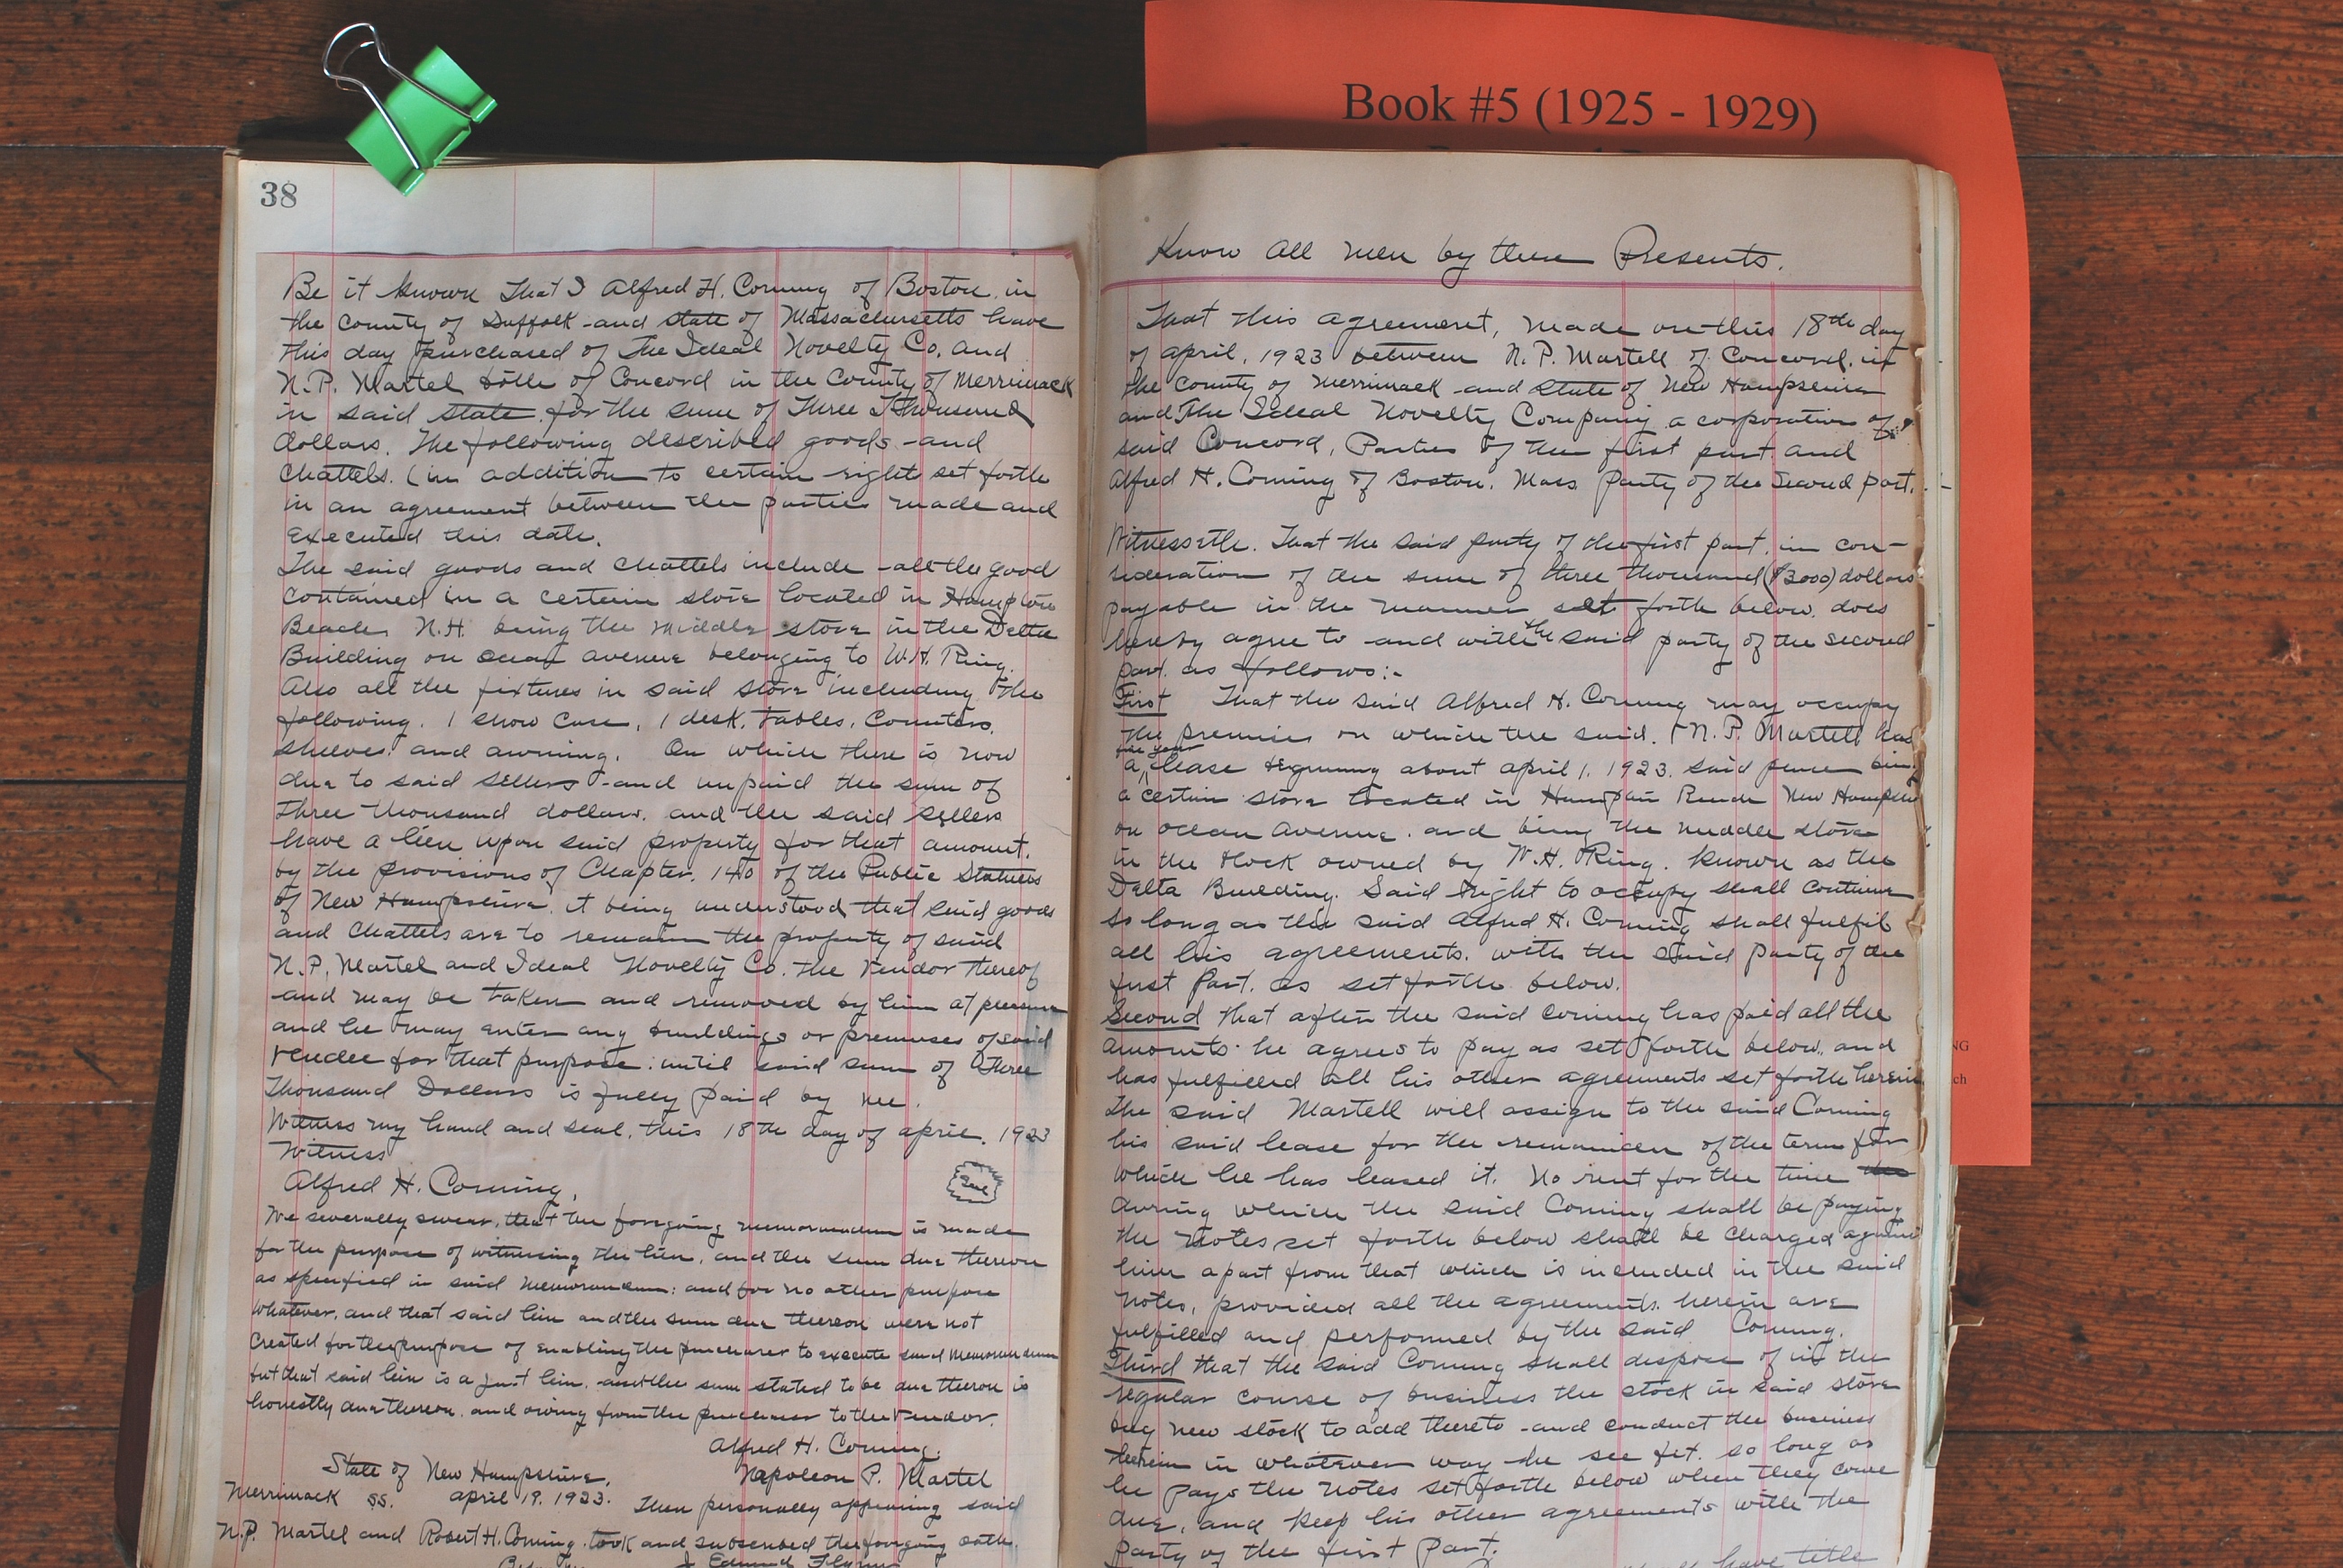 Book #5 (1925 - 1929)
38
Be it known That I Alfred H. Corning of Boston in
the County of Suffolk and state of Massachusetts have
this day purchased of The Ideal Novelty Co. and
N.P. Martel both of Concord in the County of Merrimack
in said state. for the sum of Three Thousand
dollars. The following described goods and
Chattels. (in addition to certain right set forth
in an agreement between the parties made and
executed this date.
The said goods and chattels include all the good
contained in a certain store located in Hampton
Beach, N.H. being the middle store in the Delta
Building on Ocean avenue belonging to W.H. Ring.
Also all the fixtures in said store including the
following. 1 show case, 1 desk, tables, Counters,
shelves. and awning. On which there is now
due to said sellers and unpaid the sum of
Three thousand dollars. and the said sellers
have a lien upon said property for that amount.
by the provisions of Chapter. 140 of the Public Statutes
of New Hampshire. it being understood that said goods
and chattels are to remain the property of said
N.P. Martel and Ideal Novelty Co. the Vendor thereof
and may be taken and removed by him at pleasure
and he may enter any buildings or premises of said
vendee for that purpose. until said sum of Three
Thousand Dollars is fully paid by me.
Witness my hand and seal, this 18th day of april. 1923
Witness
Alfred H. Corning.
Seal
We severally swear, that the foregoing memorandum is made
for the purpose of witnessing the lien, and the sum due thereon
as specified in said memorandum: and for no other purpose
whatever, and that said lien and the sum due thereon were not
Created for the purpose of enabling the purchaser to execute said memorandum
but that said lien is a just lien. and the sum stated to be due thereon is
honestly due thereon. and owing from the purchaser to the vendor.
Alfred H. Corning.
Napoleon P. Martel
State of New Hampshire.
Merrimack ss. april 19. 1923. Then personally appearing said
N.P. Martel and Robert H. Corning. took and subscribed the foregoing oath.
Know all men by these Presents.
That this agreement, made on this 18th day
of april, 1923 between N.P. Martell of Concord. in
the County of Merrimack and state of New Hampshire
and The Ideal Novelty Company a corporation of
said Concord, Parties of the first part and
Alfred H. Corning of Boston. Mass Party of the Second part.
Witnesseth. That the said party of the first part, in con-
sideration of the sum of three thousand ($3000) dollars
payable in the manner set forth below. does
hereby agree to and with the said party of the second
part. as follows:-
First That the said Alfred H. Corning may occupy
the premises on which the said. N.P. Martell has
a five year lease beginning about april 1. 1923. said being
a certain store located in Hampton New Hampshire
on ocean Avenue. and being the middle store
in the block owned by W.H. Ring. Known as the
Delta Building. Said right to occupy shall continue
so long as the said Alfred H. Corning shall fulfil
all his agreements. with the said party of the
first Part. as set forth below.
Second that after the said Corning has paid all the
amounts he agrees to pay as set forth below. and
has fulfilled all his other agreements set forth herein
the said Martell will assign to the said Corning
his said lease for the remainder of the term for
which he has leased it. No rent for the time
during which the said Corning shall be paying
the notes set forth below shall be charged against
him apart from that which is included in the said
notes, provided all the agreements herein are
fulfilled and performed by the said Corning.
Third that the said Corning shall dispose of in the
regular course of business the stock in said store
buy new stock to add thereto and conduct the business
therein in whatever way he see fit. so long as
he pays the notes set forth below when they come
due, and keep his other agreements with the
party of the first part.
have title